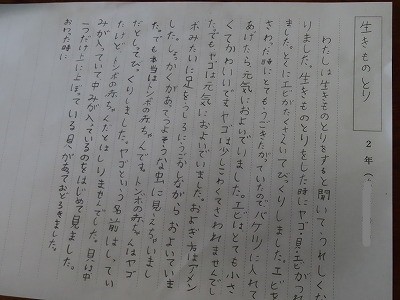 生きものとり
2年(
わたしは生きものとりをすると聞いてうれしくな
りました。生きものとりをした時にヤゴ・貝・エビがつれ
ました。とくにエビがたくさんいてびっくりしました。エビを
さわった時にとてもうごきたがっていたのでバケツに入れて
あげたら元気におよいでいました。エビはとても小さ
くてかわいいです。ヤゴは少しこわくてさわれませんでし
た。でもヤゴは元気におよいでいました。およぎ方はアメン
ボみたいに足をうしろにうごかしながらおよいでいま
した。しょっかくがあってつよそうな虫に見えちゃいまし
た。でも本当はトンボの赤ちゃんです。トンボの赤ちゃんはヤゴ
だとしてびっくりしました。ヤゴという名前はしってい
たけどトンボの赤ちゃんだとはしりませんでした。貝は中
みが入っていて中みが入っているのをはじめて見ました。
一つだけ上によぼっている貝へがあっておどろきました。
おわった時に